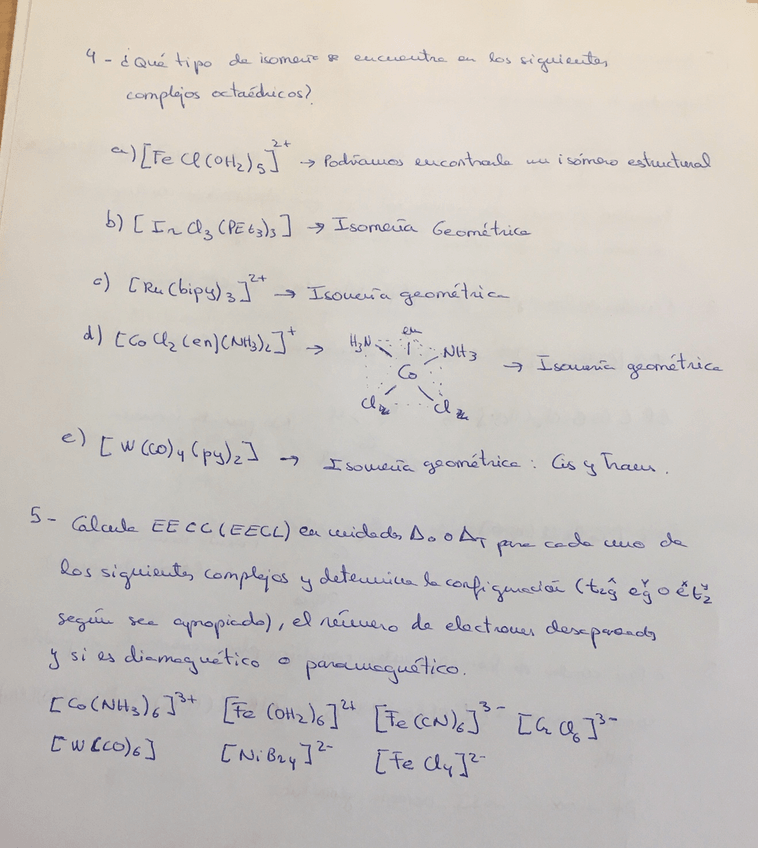 4 - ¿Qué tipo de isomería se encuentra en los siguientes
complejos octaédricos?
a) [Fe Cl(OH2)5]2+ → Podríamos encontrarle un isómero estructural
b) [Ir Cl3 (PEt3)3] → Isomería Geométrica
c) [Ru(bipy)3]2+ → Isomería geométrica
d) [CoCl2(en)(NH3)2]+ → H3N en NH3 Co Cl Cl → Isomería geométrica
e) [W(CO)4(py)2] → Isomería geométrica: Cis y Trans.
5 - Calcula EECC (EECL) en unidades Δo o ΔT para cada uno de
los siguientes complejos y determina la configuración (t2g^x eg^y o e^x t2^y
según sea apropiado), el número de electrones desapareados
y si es diamagnético o paramagnético.
[Co(NH3)6]3+ [Fe(OH2)6]2+ [Fe(CN)6]3- [Cr Cl6]3-
[W(CO)6] [NiBr4]2- [Fe Cl4]2-